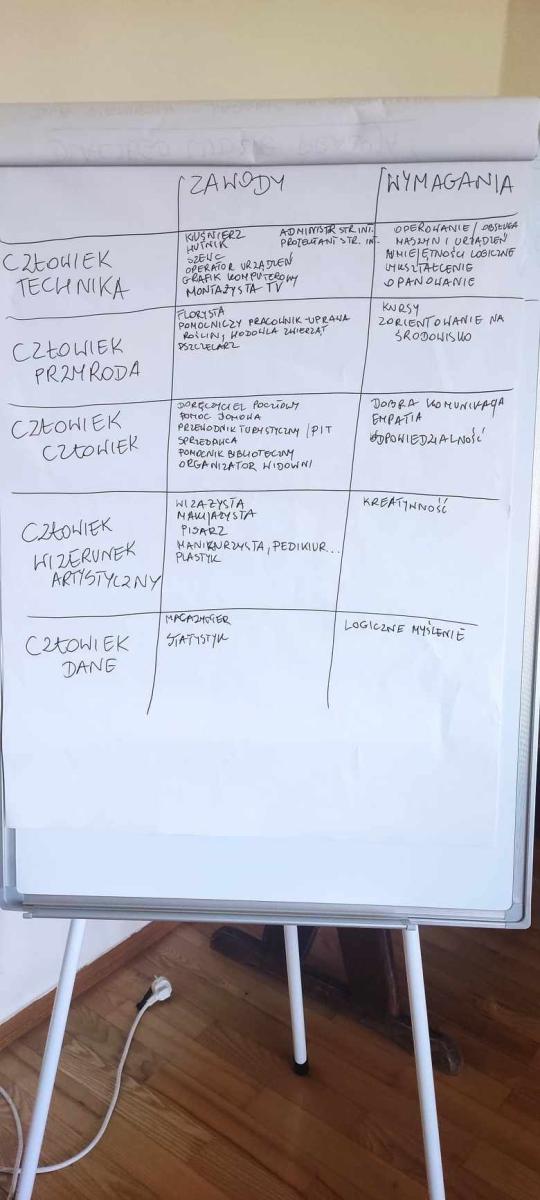 ZAWODY
WYMAGANIA
CZŁOWIEK
TECHNIKA
KUŚNIERZ
HUTNIK
SZEWC
OPERATOR URZĄDZEŃ
GRAFIK KOMPUTEROWY
MONTAŻYSTA TV
ADMINISTR STR. INT.
PROJEKTANT STR. INT.
OPEROWANIE / OBSŁUGA
MASZYN I URZĄDZEŃ
UMIEJĘTNOŚCI LOGICZNE
WYKSZTAŁCENIE
OPANOWANIE
CZŁOWIEK
PRZYRODA
FLORYSTA
POMOCNICZY PRACOWNIK - UPRAWA
ROŚLIN, HODOWLA ZWIERZĄT
PSZCZELARZ
KURSY
ZORIENTOWANIE NA
ŚRODOWISKO
CZŁOWIEK
CZŁOWIEK
DORĘCZYCIEL POCZTOWY
POMOC DOMOWA
PRZEWODNIK TURYSTYCZNY / PIT
SPRZEDAWCA
POMOCNIK BIBLIOTECZNY
ORGANIZATOR WIDOWNI
DOBRA KOMUNIKACJA
EMPATIA
ODPOWIEDZIALNOŚĆ
CZŁOWIEK
WIZERUNEK
ARTYSTYCZNY
WIZAŻYSTA
MAKIJAŻYSTA
PISARZ
MANIKIURZYSTA, PEDIKIUR...
PLASTYK
KREATYWNOŚĆ
CZŁOWIEK
DANE
MAGAZYNIER
STATYSTYK
LOGICZNE MYŚLENIE